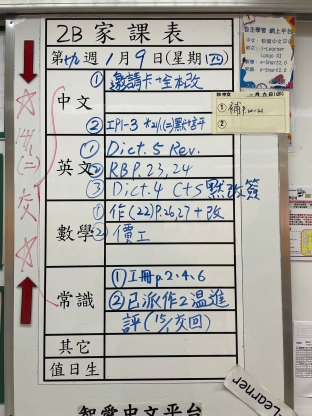 2B 家課表
第十九週 1月9日(星期四)
中文
① 邀請卡+全本改
② 工P1-3
英文
① Dict.5 Rev.
② RBP.23,24
③ Dict.4 C+S 默改簽
數學
① 作(22)P.26,27+改
② 價工
常識
① 工冊p.2,4,6
② 已派作2溫進
評(15/1交回)
其它
值日生
智愛中文平台
14/1(二)交
自主學習 網上平台
① 補P.20-21
②
eLearner